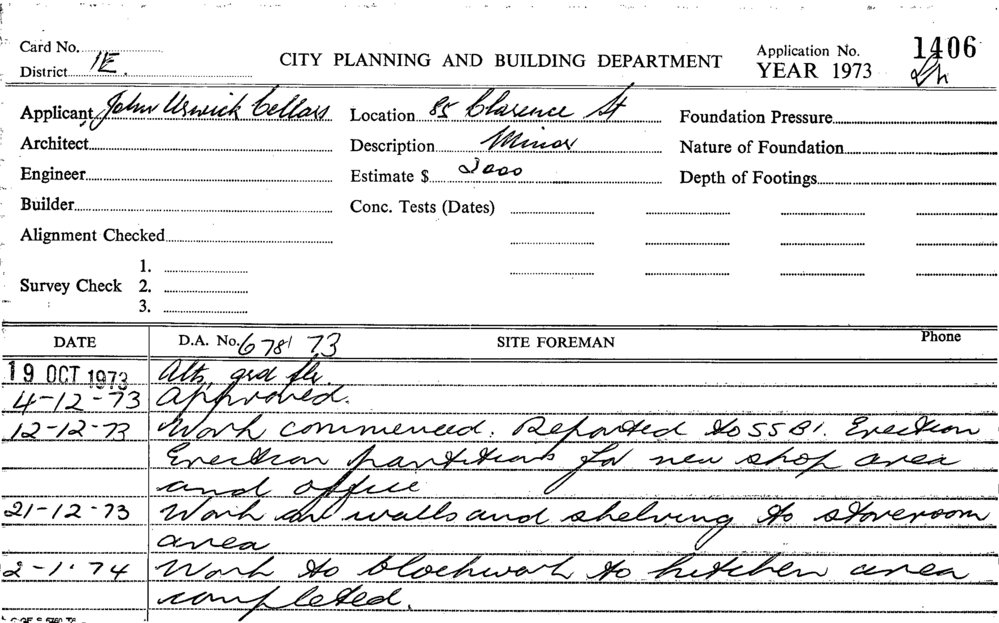 Card No.
District 1E.
CITY PLANNING AND BUILDING DEPARTMENT
Application No. 1406
YEAR 1973
Applicant John Urwick Cellars
Location 85 Clarence St
Foundation Pressure
Architect
Description Minor
Nature of Foundation
Engineer
Estimate $ 2000
Depth of Footings
Builder
Conc. Tests (Dates)
Alignment Checked
1.
Survey Check 2.
3.
DATE D.A. No. 678/ 73 SITE FOREMAN Phone
19 OCT 1973 Alts, grd flr.
4-12-73 Approved.
12-12-73 Work commenced. Reported to SSBI. Erection
Erection partitions for new shop area
and office
21-12-73 Work on walls and shelving to storeroom
area
2-1-74 Work to blockwork to kitchen area
completed.